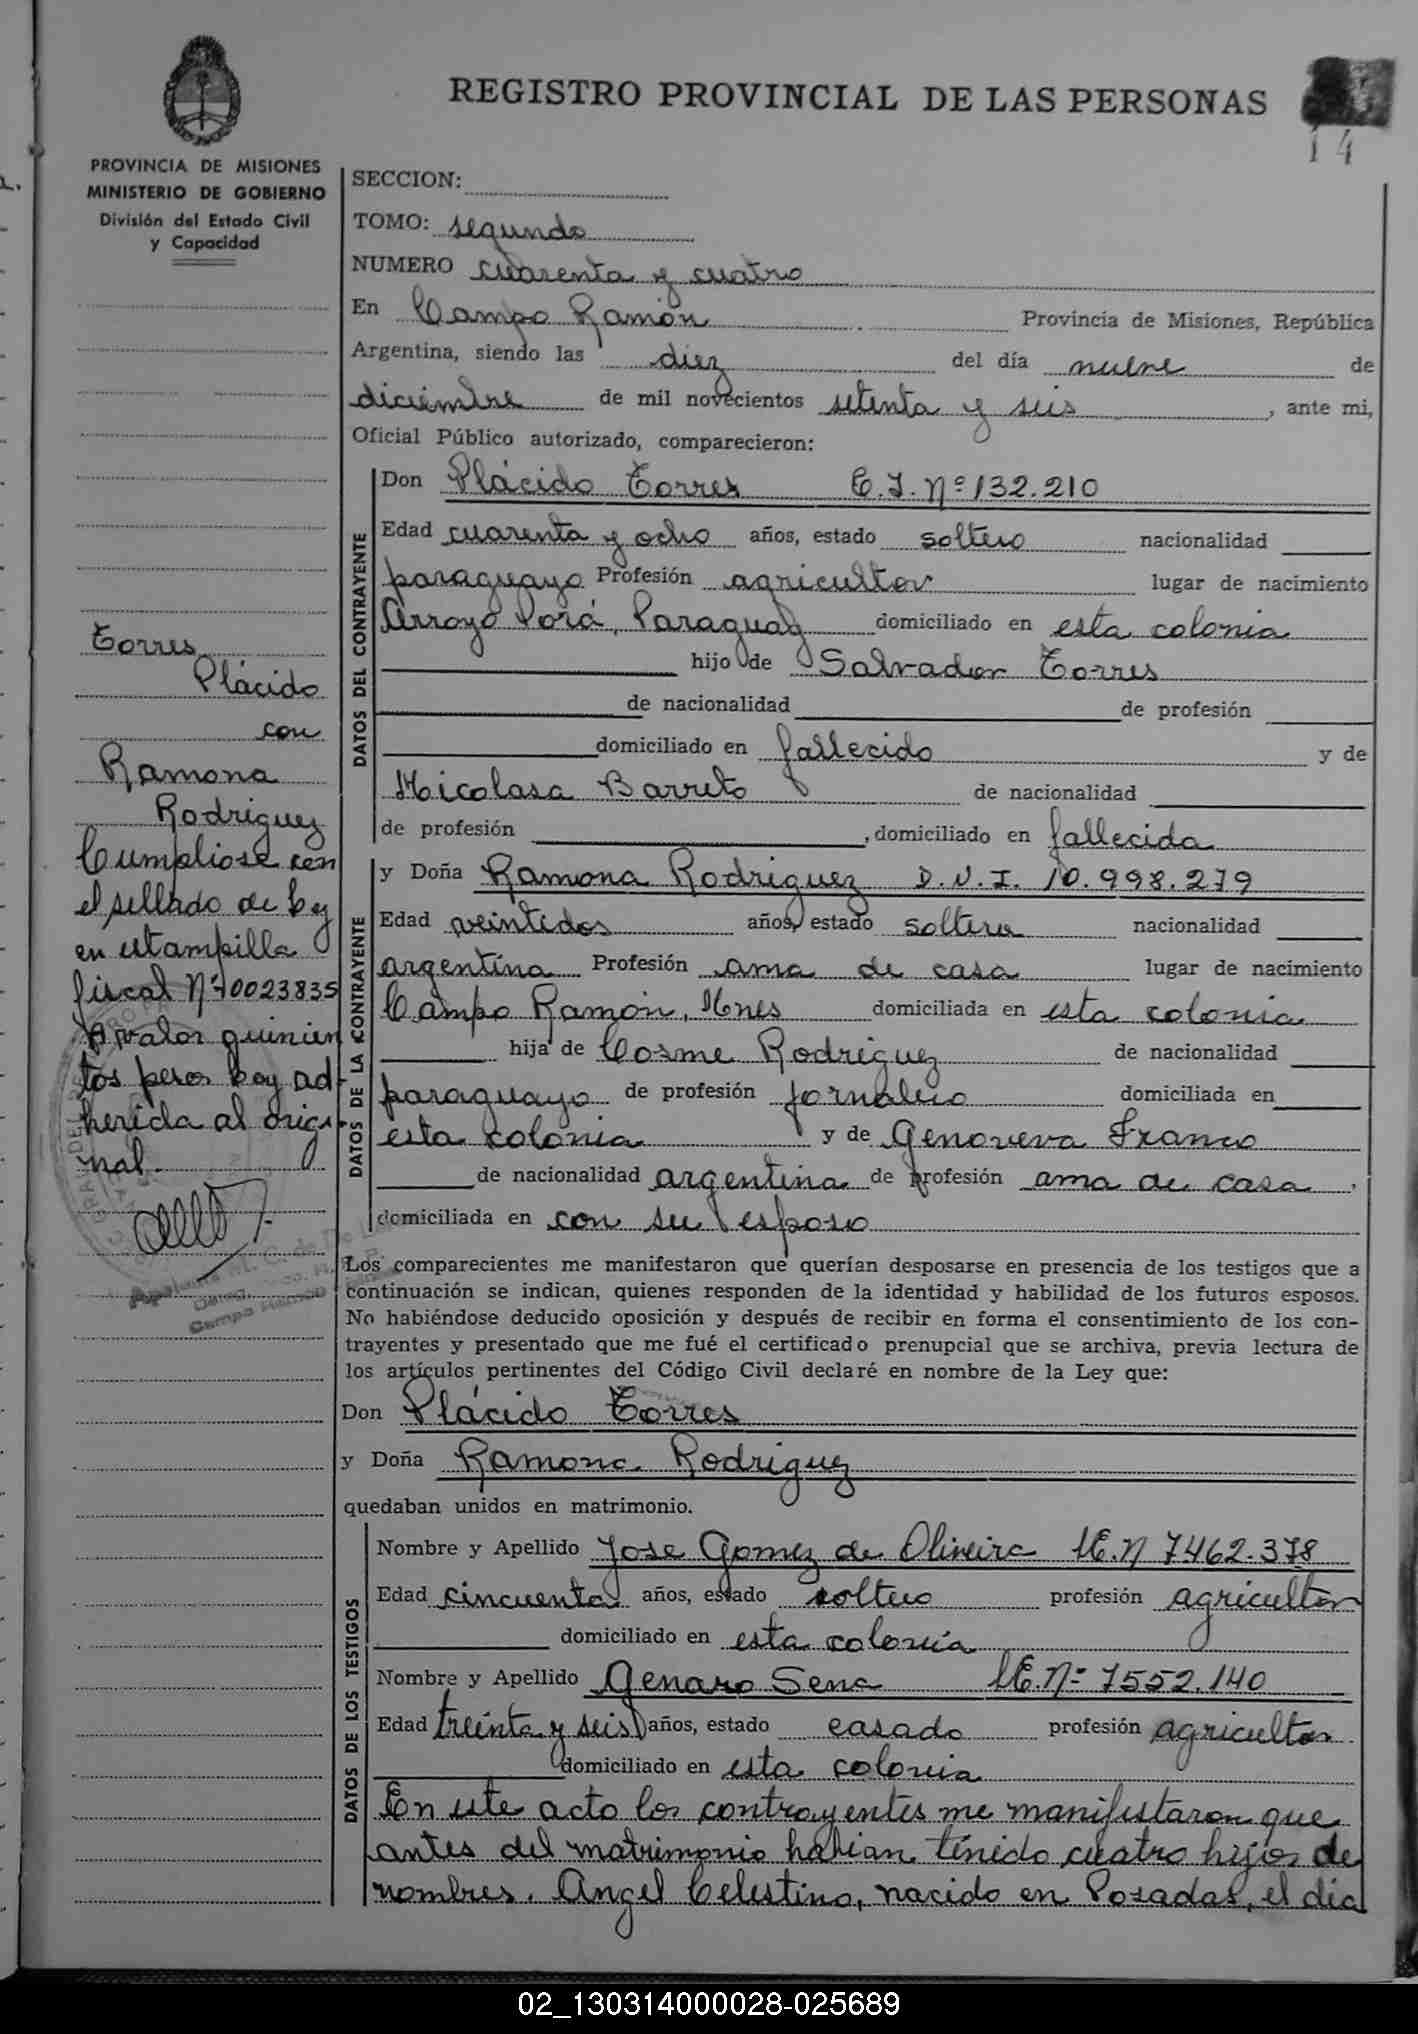 REGISTRO PROVINCIAL DE LAS PERSONAS
14
PROVINCIA DE MISIONES
MINISTERIO DE GOBIERNO
División del Estado Civil
y Capacidad
SECCION:
TOMO: segundo
NUMERO cuarenta y cuatro
En Campo Ramón Provincia de Misiones, República
Argentina, siendo las diez del día nueve de
diciembre de mil novecientos setenta y seis, ante mi,
Oficial Público autorizado, comparecieron:
DATOS DEL CONTRAYENTE
Don Plácido Torres C.I. Nº 132.210
Edad cuarenta y ocho años, estado soltero nacionalidad
paraguayo Profesión agricultor lugar de nacimiento
Arroyo Porá, Paraguay domiciliado en esta colonia
hijo de Salvador Torres
de nacionalidad de profesión
domiciliado en fallecido y de
Nicolasa Barreto de nacionalidad
de profesión , domiciliado en fallecida
DATOS DE LA CONTRAYENTE
y Doña Ramona Rodriguez D.N.I. 10.998.279
Edad veintidos años, estado soltera nacionalidad
argentina Profesión ama de casa lugar de nacimiento
Campo Ramón, Mnes domiciliada en esta colonia
hija de Cosme Rodriguez de nacionalidad
paraguayo de profesión jornalero domiciliada en
esta colonia y de Genoveva Franco
de nacionalidad argentina de profesión ama de casa,
domiciliada en con su esposo
Los comparecientes me manifestaron que querían desposarse en presencia de los testigos que a
continuación se indican, quienes responden de la identidad y habilidad de los futuros esposos.
No habiéndose deducido oposición y después de recibir en forma el consentimiento de los con-
trayentes y presentado que me fué el certificado prenupcial que se archiva, previa lectura de
los artículos pertinentes del Código Civil declaré en nombre de la Ley que:
Don Plácido Torres
y Doña Ramona Rodriguez
quedaban unidos en matrimonio.
DATOS DE LOS TESTIGOS
Nombre y Apellido Jose Gomez de Oliveira M.E. N 7462.378
Edad cincuenta años, estado soltero profesión agricultor
domiciliado en esta colonia
Nombre y Apellido Genaro Sena M.E. Nº 7552.140
Edad treinta y seis años, estado casado profesión agricultor
domiciliado en esta colonia
En este acto los contrayentes me manifestaron que
antes del matrimonio habian tenido cuatro hijos de
nombres. Angel Celestino, nacido en Posadas, el dia
Torres
Plácido
con
Ramona
Rodriguez
Cumpliose con
el sellado de ley
en estampilla
fiscal Nº 0023835
valor quinien
tos pesos hoy ad-
herida al origi-
nal.
Campo Ramón
02_130314000028-025689